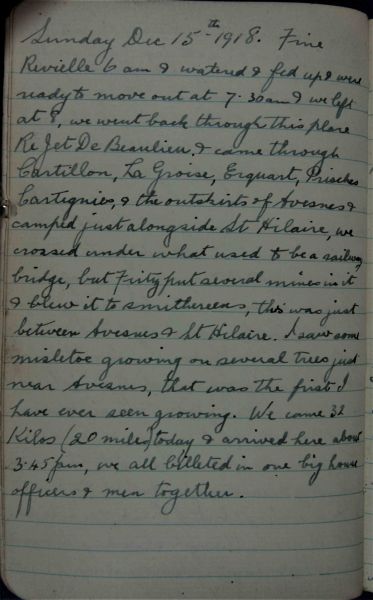 Sunday Dec 15th 1918. Fine
Revielle 6 am & watered & fed up & were
ready to move out at 7.30am & we left
at 8, we went back through this place
Re Jet De Beaulieu, & came through
Cartillon, La Groise, Erquart, Prisches
Cartignies, & the outskirts of Avesnes &
camped just alongside St Hilaire, we
crossed under what used to be a railway
bridge, but Fritz put several mines in it
& blew it to smithereens, this was just
between Avesnes & St Hilaire. I saw some
misletoe growing on several trees just
near Avesnes, that was the first I
have ever seen growing. We came 32
Kilos (20 miles) today & arrived here about
3.45pm, we all billeted in one big house
officers & men together.